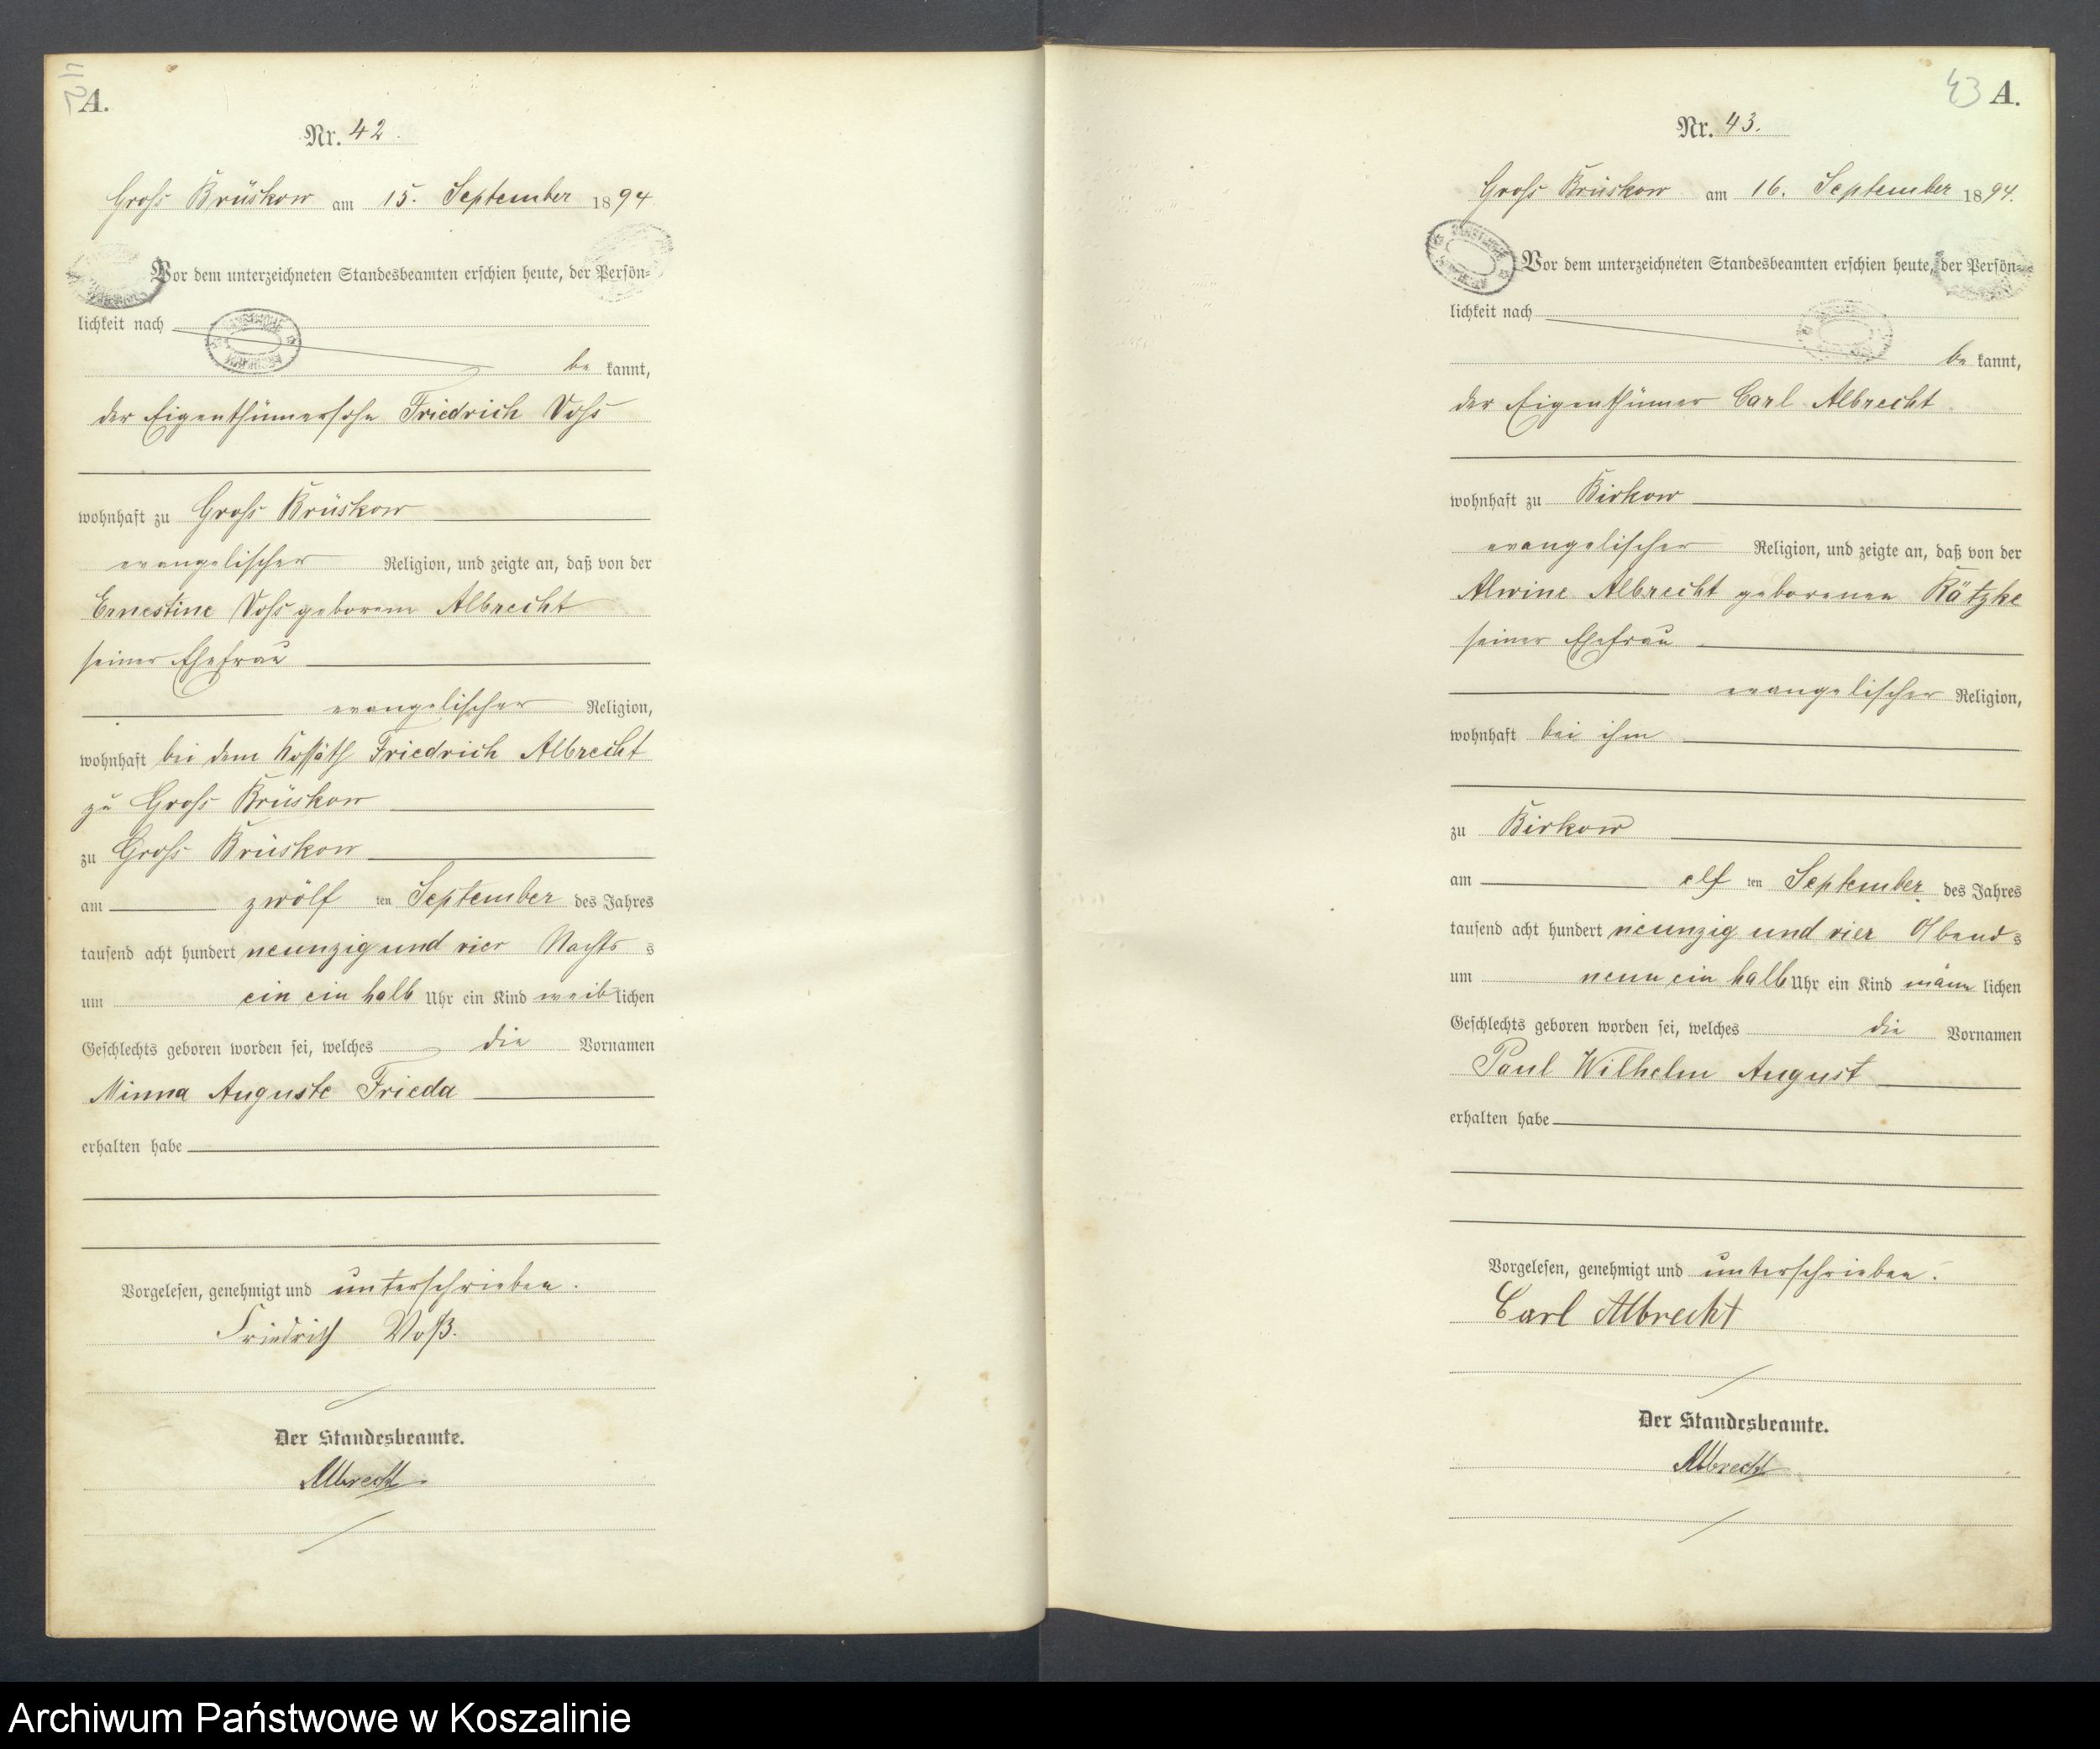 42
A.
Nr. 42.
Groß Brüskow am 15. September 1894
Vor dem unterzeichneten Standesbeamten erschien heute, der Persön=
lichkeit nach
be kannt,
der Eigenthümersohn Friedrich Voß
wohnhaft zu Groß Brüskow
evangelischer Religion, und zeigte an, daß von der
Ernestine Voß geborene Albrecht
seiner Ehefrau
evangelischer Religion,
wohnhaft bei dem Kossäth Friedrich Albrecht
zu Groß Brüskow
zu Groß Brüskow
am zwölf ten September des Jahres
tausend acht hundert neunzig und vier Nachts s
um ein ein halb Uhr ein Kind weib lichen
Geschlechts geboren worden sei, welches die Vornamen
Minna Auguste Frieda
erhalten habe
Vorgelesen, genehmigt und unterschrieben.
Friedrich Voß.
Der Standesbeamte.
Albrecht
43 A.
Nr. 43.
Groß Brüskow am 16. September 1894.
Vor dem unterzeichneten Standesbeamten erschien heute, der Persön=
lichkeit nach
be kannt,
der Eigenthümer Carl Albrecht
wohnhaft zu Birkow
evangelischer Religion, und zeigte an, daß von der
Alwine Albrecht geborenen Kätzke
seiner Ehefrau
evangelischer Religion,
wohnhaft bei ihm
zu Birkow
am elf ten September des Jahres
tausend acht hundert neunzig und vier Abend s
um neun ein halb Uhr ein Kind männ lichen
Geschlechts geboren worden sei, welches die Vornamen
Paul Wilhelm August
erhalten habe
Vorgelesen, genehmigt und unterschrieben.
Carl Albrecht
Der Standesbeamte.
Albrecht
Archiwum Państwowe w Koszalinie